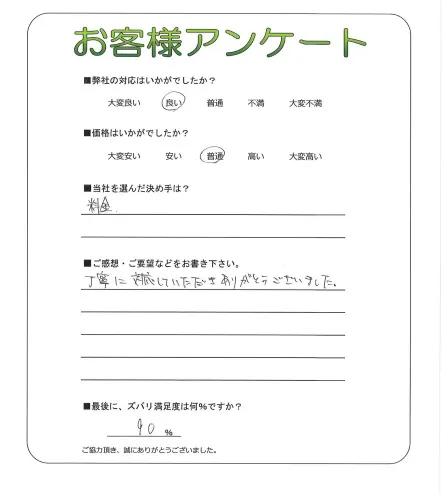 お客様アンケート
■弊社の対応はいかがでしたか？
大変良い 良い 普通 不満 大変不満
■価格はいかがでしたか？
大変安い 安い 普通 高い 大変高い
■当社を選んだ決め手は？
料金.
■ご感想・ご要望などをお書き下さい。
丁寧に対応していただきありがとうございました。
■最後に、ズバリ満足度は何％ですか？
90 %
ご協力頂き、誠にありがとうございました。